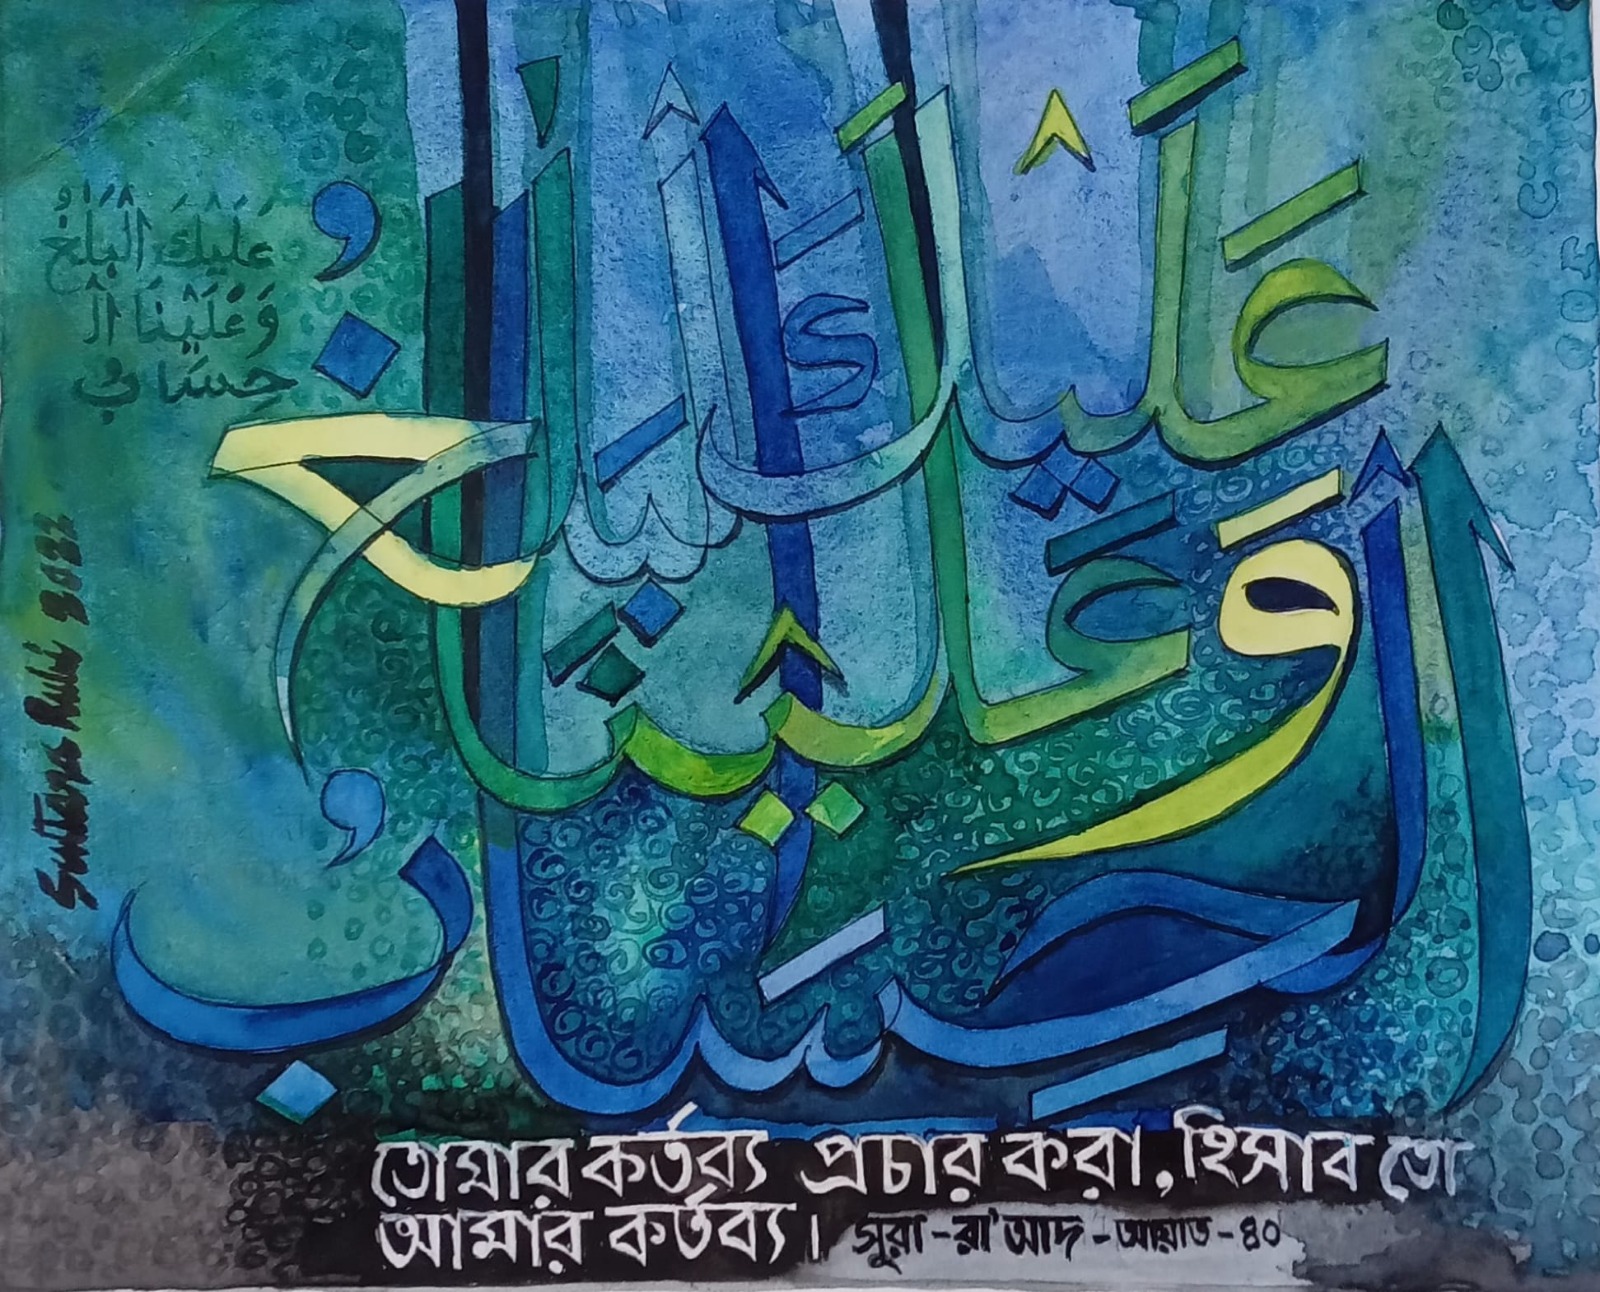 عَلَيْكَ الْبَلٰغُ
وَعَلَيْنَا الْ
حِسَابُ
عَلَيْكَ الْبَلٰغُ
وَعَلَيْنَا
الْحِسَابُ
Sultana Ruhi 2022
তোমার কর্তব্য প্রচার করা, হিসাব তো
আমার কর্তব্য। সুরা-রা'আদ-আয়াত-৪০